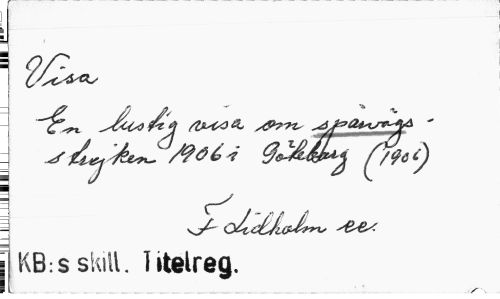 Visa
En lustig visa om spårvägs-
strejken 1906 i Göteborg (1906)
F Lidholm ec.
KB:s skill. Titelreg.